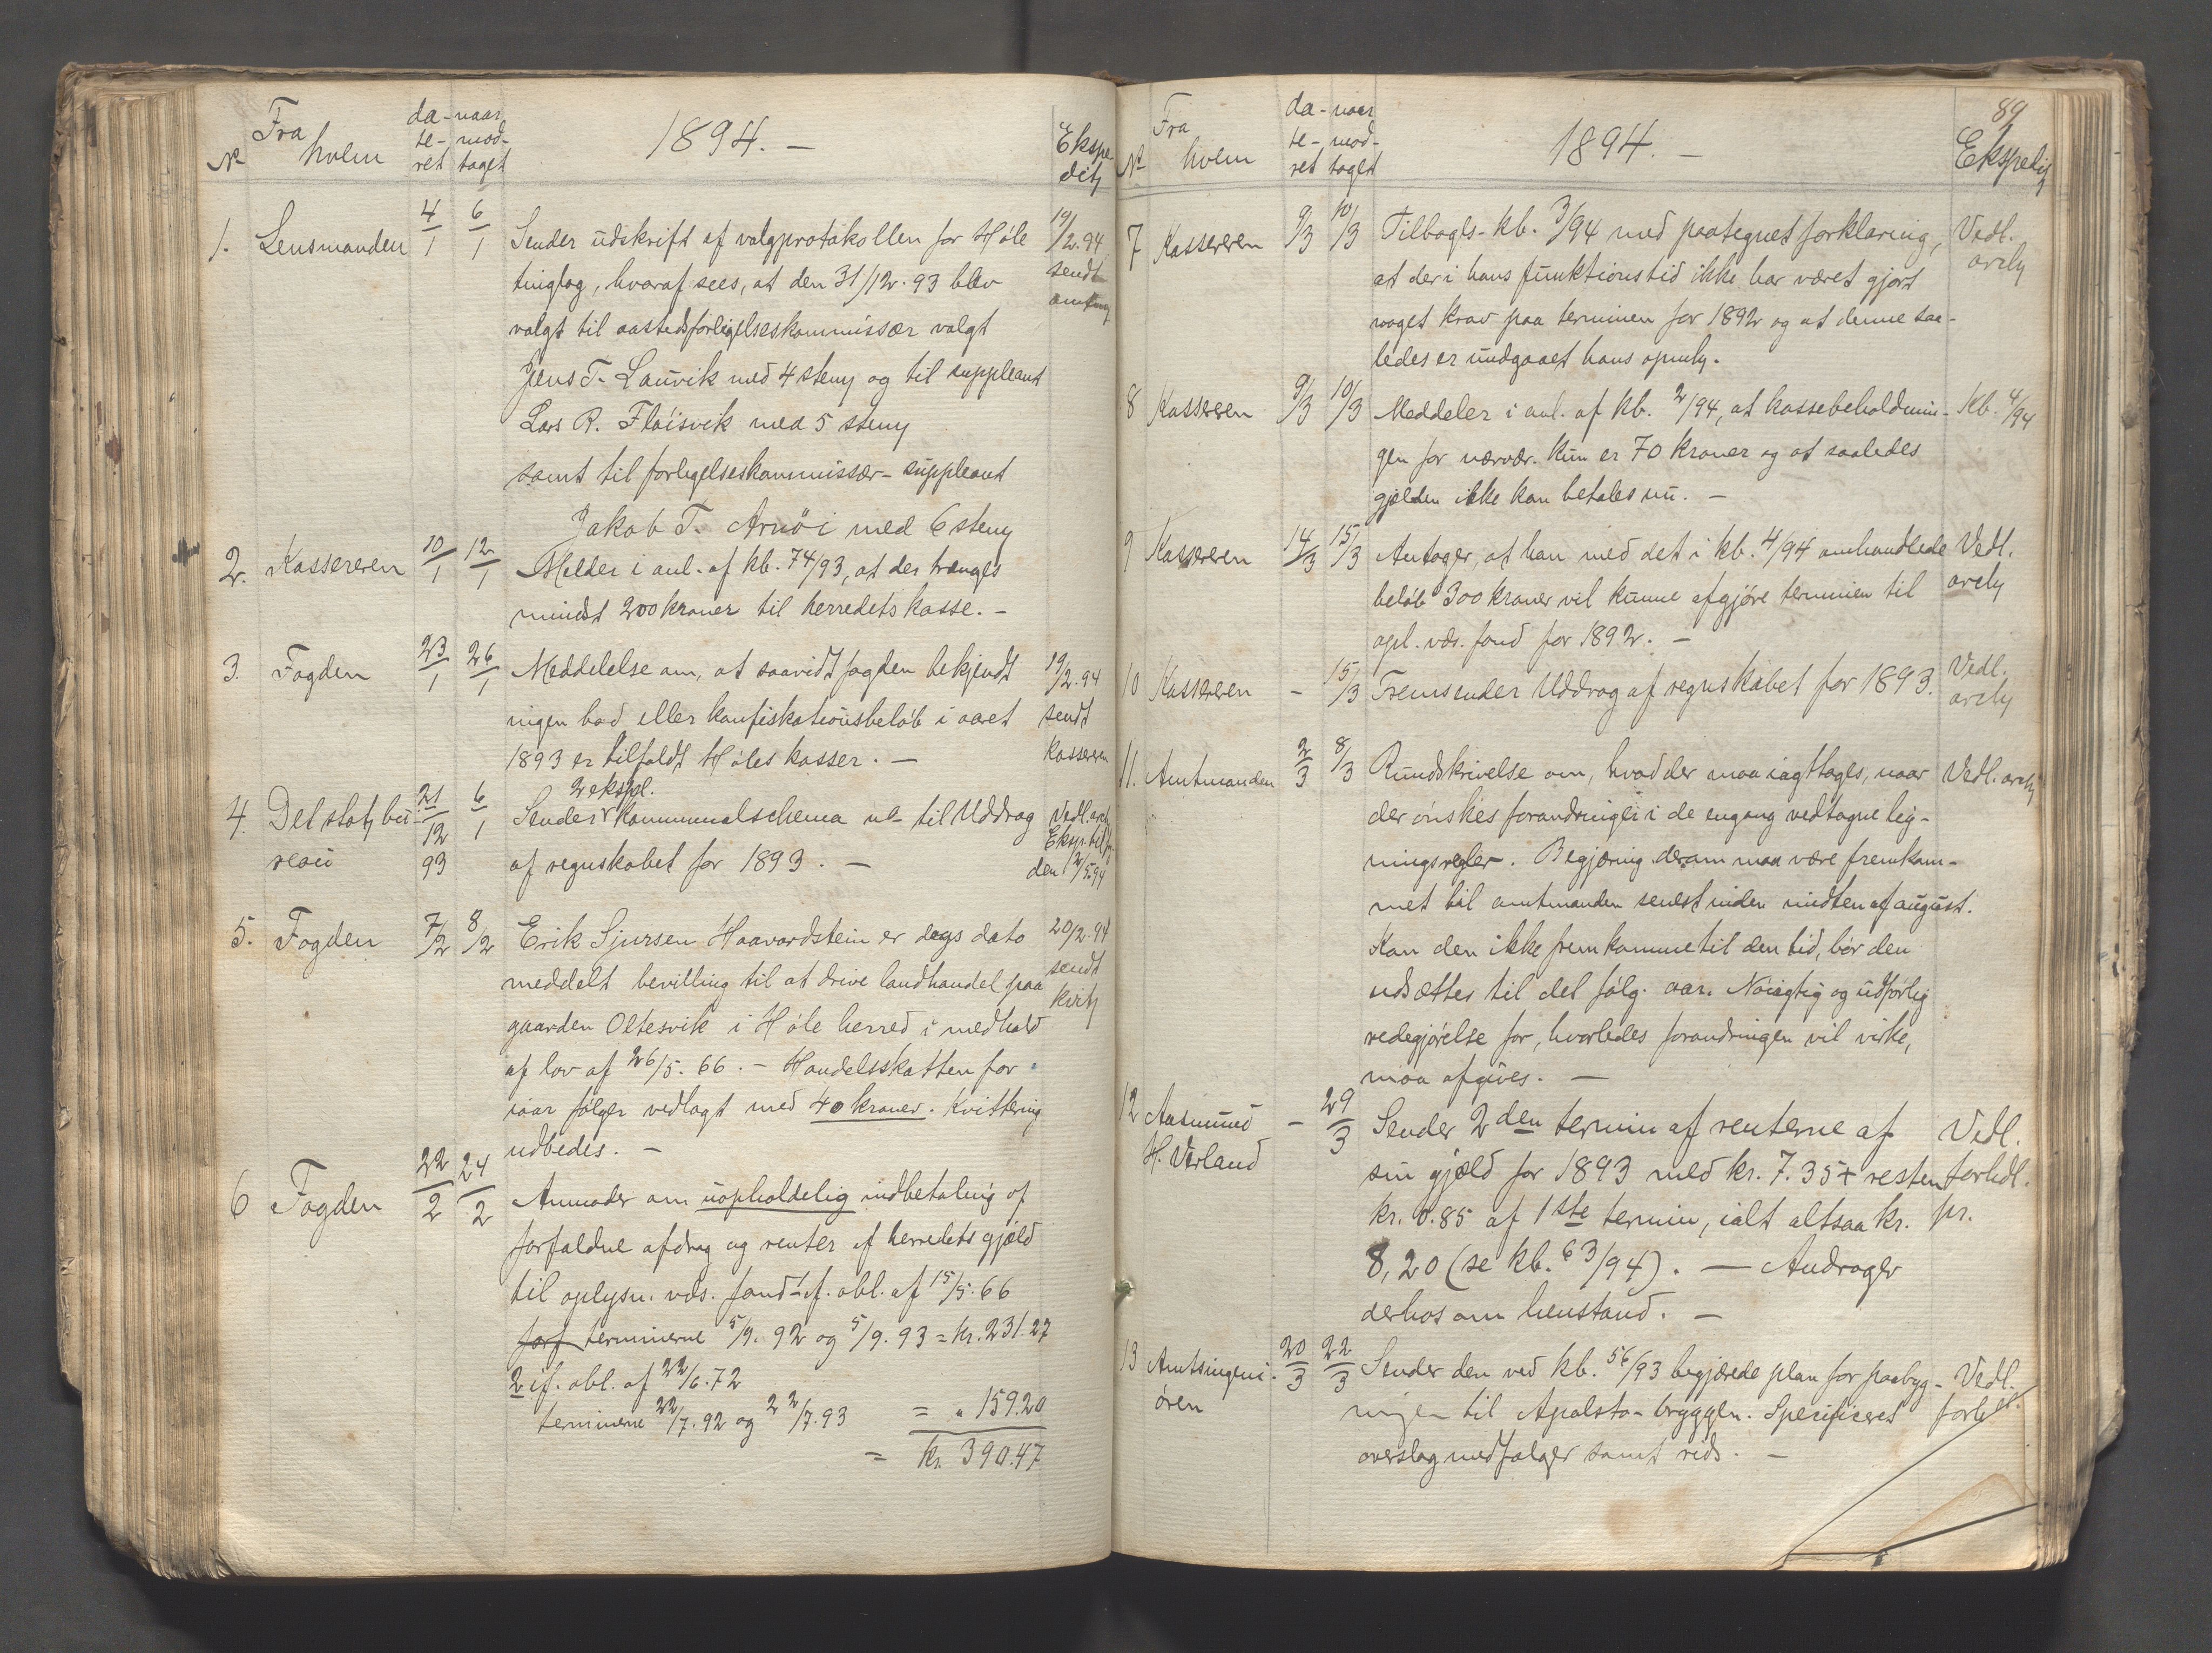 Fra
hvem
No
da-
te-
ret
naar
mod-
taget
1894. —
Ekspe-
ditj
1. Lensmanden 4/1 6/1 Sender udskrift af valgprotokollen for Høle 19/2.94
tinglag, hvoraf sees, at den 31/12.93 blev sendt
valgt til aastedsforligelseskommissær valgt amtm
Jens T. Lauvik med 4 stem og til suppleant
Lars R. Fløisvik med 5 stem
samt til forligelseskommissær-suppleant
Jakob T. Arnøi med 6 stem
2. Kassereren 10/1 12/1 Melder i anl. af kb. 74/93, at der trænges
mindst 200 kroner til herredets kasse. —
3. Fogden 23/1 26/1 Meddelelse om, at saavidt fogden bekjendt 19/2.94
ingen bod eller konfiskationsbeløb i aaret sendt
1893 er tilfaldt Høles kasser. — kasseren
2 ekspl.
4. Det statj bü- 21/12 6/1 Sender kommunalschema til Uddrag Vedl. arch
reau 93 af regnskabet for 1893. — Eksp.
den 12/5.94
5. Fogden 7/2 8/2 Erik Sjursen Haavardstein er dags dato 20/2.94
meddelt bevilling til at drive landhandel paa sendt
gaarden Oltesvik i Høle herred i medhold kvitj
af lov af 26/5.66. — Handelsskatten for
iaar følger vedlagt med 40 kroner. Kvittering
udbedes. —
6 Fogden 22/2 24/2 Anmoder om uopholdelig indbetaling af
forfaldne afdrag og renter af herredets gjæld
til oplysn. vds. fond 1 if. obl. af 15/5.66
forf terminerne 5/9.92 og 5/9.93 = kr. 231.27
2 if. obl. af 22/6.72
terminerne 22/7.92 og 22/7.93 = „ 159.20
= kr. 390.47
89
Fra
hvem
No
da-
te-
ret
naar
mod-
taget
1894. —
Ekspedij
7 Kassereren 9/3 10/3 Tilbages. kb. 3/94 med paategnet forklaring, Vedl.
at der i hans funktionstid ikke har været gjort arch
noget krav paa terminen for 1892 og at denne saa-
ledes er undgaaet hans opm.
8 Kassereren 9/3 10/3 Meddeler i anl. af kb. 2/94, at kassebeholdnin- Kb. 4/94
gen for nærvær. kun er 70 kroner og at saaledes
gjælden ikke kan betales nu. —
9 Kassereren 14/3 15/3 Antager, at han med det i kb. 4/94 omhandlede Vedl.
beløb 300 kroner vil kunne afgjøre terminen til arch
opl. vds. fond for 1892. —
10 Kassereren — 15/3 Fremsender Uddrag af regnskabet for 1893. Vedl.
arch
11. Amtmanden 2/3 8/3 Rundskrivelse om, hvad der maa iagttages, naar Vedl. arch
der ønskes forandringer i de engang vedtagne lig-
ningsregler. Begjæring derom maa være fremkom-
met til amtmanden senest inden midten af august.
Kan den ikke fremkomme til den tid, bør den
udsættes til det følg. aar. Nøiagtig og udførlig
redegjørelse for, hvorledes forandringen vil virke,
maa afgives. —
12 Aasmund — 29/3 Sender 2den termin af renterne af Vedl.
H. Verland sin gjæld for 1893 med kr. 7.35 + resten forhdl.
kr. 0.85 af 1ste termin, ialt altsaa kr. pr.
8,20 (se kb. 63/94). — Andrager
derhos om henstand. —
13 Amtsingeni- 20/3 22/3 Sender den ved kb. 56/93 begjærede plan for paabyg- Vedl.
øren ningen til Apalstø-bryggen. Specificeret forh
overslag medfølger samt rids. —